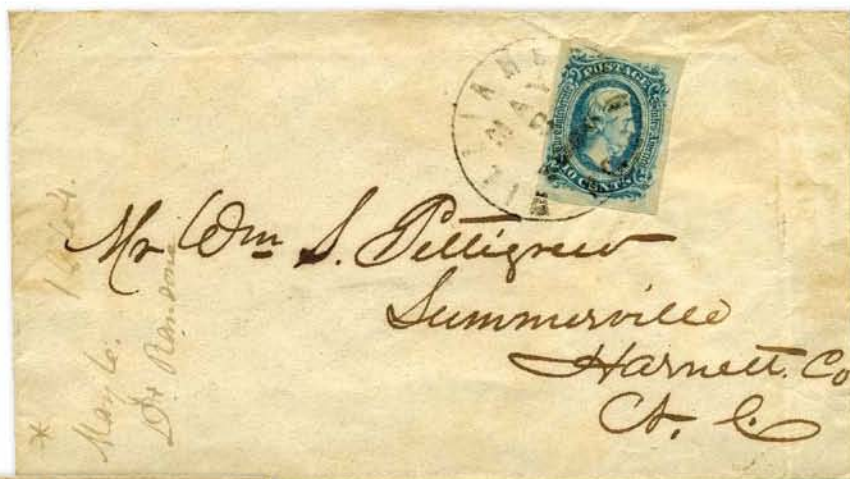 POSTAGE
10 CENTS
MAY
Mr Wm S. Pettigrew
Summerville
Harnett. Co
N. C.
May 6. 1864.
Dr Ransome
*